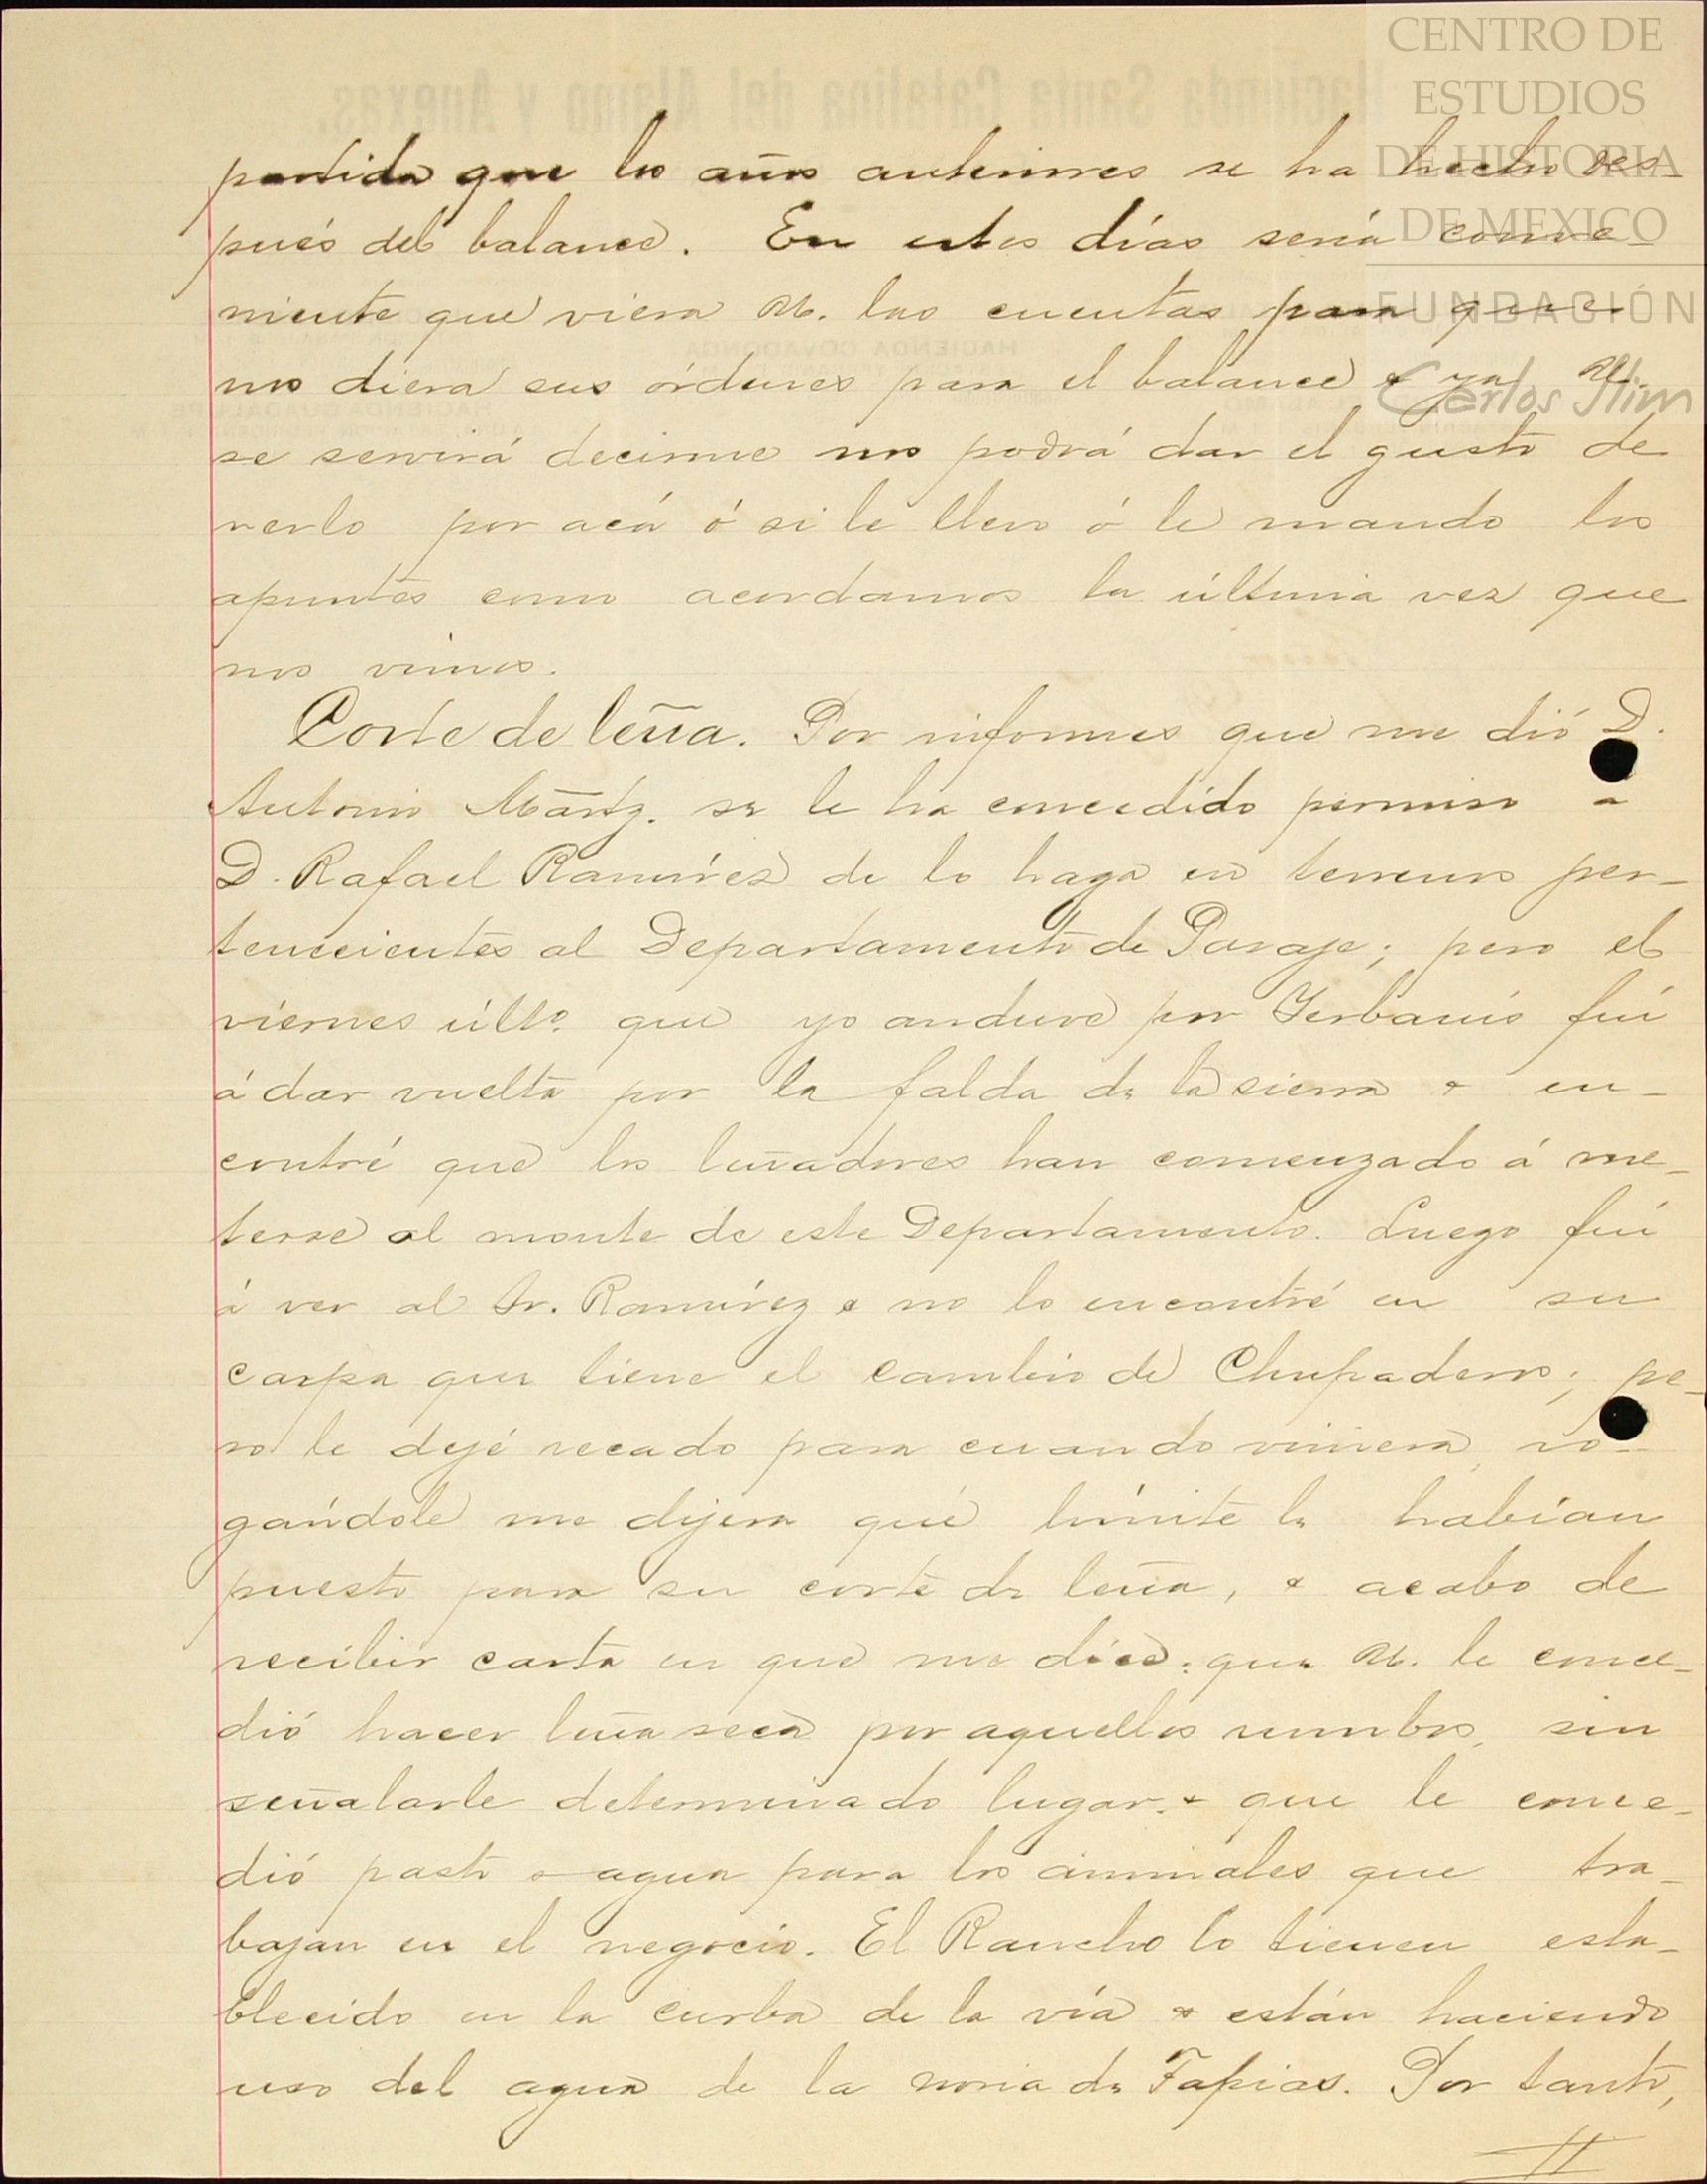 CENTRO DE
ESTUDIOS
DE HISTORIA
DE MEXICO
FUNDACIÓN
Carlos Slim
Hacienda Santa Catalina del Alamo y Anexas.
HACIENDA COVADONGA
HACIENDA GUADALUPE
partida que los años anteriores se ha hecho des-
pués del balance. En estos días sería conve-
niente que viera U. las cuentas para que
nos diera sus órdenes para el balance & ya U.
se servirá decirme nos podrá dar el gusto de
verlo por acá ó si le llevo ó le mando los
apuntes como acordamos la última vez que
nos vimos.
Corte de leña. Por informes que me dió D.
Antonio Martz. se le ha concedido permiso a
D. Rafael Ramírez de lo haga en terrenos per-
tenecientes al Departamento de Pasaje; pero el
viernes últo. que yo anduve por Yerbanís fuí
á dar vuelta por la falda de la sierra & en-
contré que los leñadores han comenzado á me-
terse al monte de este Departamento. Luego fuí
á ver al Sr. Ramírez & no lo encontré en su
carpa que tiene el cambio de Chupaderos; pe-
ro le dejé recado para cuando viniera, ro-
gándole me dijera qué límite le habían
puesto para su corte de leña, & acabo de
recibir carta en que me dice: que U. le conce-
dió hacer leña seca por aquellos rumbos, sin
señalarle determinado lugar. & que le conce-
dió pasto & agua para los animales que tra-
bajan en el negocio. El Rancho lo tienen esta-
blecido en la curba de la vía & están haciendo
uso del agua de la noria de Tapias. Por tanto,